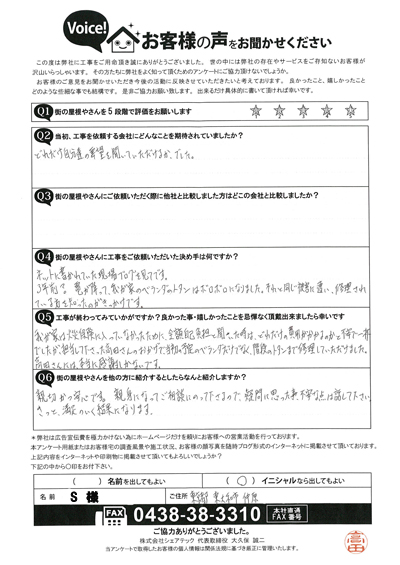 Voice! お客様の声をお聞かせください
この度は弊社に工事をご用命頂き誠にありがとうございました。世の中には弊社の存在やサービスをご存知ない お客様が
沢山いらっしゃいます。その方たちに弊社をよく知って頂くためのアンケートにご協力頂けないでしょうか。
お客様のご意見をお聞かせいただき今後の活動に反映させていただきたいと考えております。良かったこと、嬉しかったこと
どのような些細な事でも結構です。是非ご協力お願い致します。出来るだけ具体的に書いて頂ければ幸いです。
Q1 街の屋根やさんを5段階で評価をお願いします
Q2 当初、工事を依頼する会社にどんなことを期待されていましたか?
どれだけ自分達の希望を聞いていただけるか、でした。
Q3 街の屋根やさんにご依頼いただく際に他社と比較しました方はどこの会社と比較しましたか?
Q4 街の屋根やさんに工事をご依頼いただいた決め手は何ですか?
ネットに書かれていた現場ブログを見てです。
3年前に雹が降って、我が家のベランダのトタンはボロボロになりました。それと同じ被害に遭い、修理され
ている方を知ったのがきっかけです。
Q5 工事が終わってみていかがですか?良かった事・嬉しかったことを忌憚なく頂戴出来ましたら幸いです
我が家は火災保険に入っていなかったために、全額自己負担と聞いた時は、どれだけ費用がかかるのかと不安で一杯
でしたが担当して下さった高田さんのおかげで当初の予定のベランダだけでなく、階段のトタンまで修理していただけました。
高田さんには本当に感謝しかないです。
Q6 街の屋根やさんを他の方に紹介するとしたらなんと紹介しますか?
親切かつ安心です。親身になってご相談にのって下さるので、疑問に思った事、不安な点は話して下さい。
きっと、満足のいく結果になります。
*弊社は広告宣伝費を極力かけない為にホームページだけを頼りにお客様への営業活動を行っております。
本アンケート用紙またはお客様宅の調査風景や施工状況、お客様の顔写真を随時ブログ形式のインターネットに掲載させて頂いております。
上記内容をインターネットや印刷物に掲載させて頂いてもよろしいでしょうか?
下記の中から〇印をお付下さい。
( )名前を出してもよい (〇)イニシャルなら出してもよい
名前 S 様 ご住所
FAX 0438-38-3310 本社直通 FAX番号
ご協力ありがとうございました。
株式会社シェアテック 代表取締役 大久保 誠二
当アンケートで取得したお客様の個人情報は関係法規に基づき厳正に管理いたします。
高田